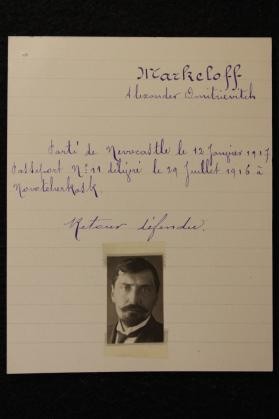 Markeloff
Alexander Dmitrievitch
Parti de Newcastle le 12 Janvier 1917.
Passeport N° 11 délivré le 29 Juillet 1916 à
Novotcherkask.
Retour défendu.